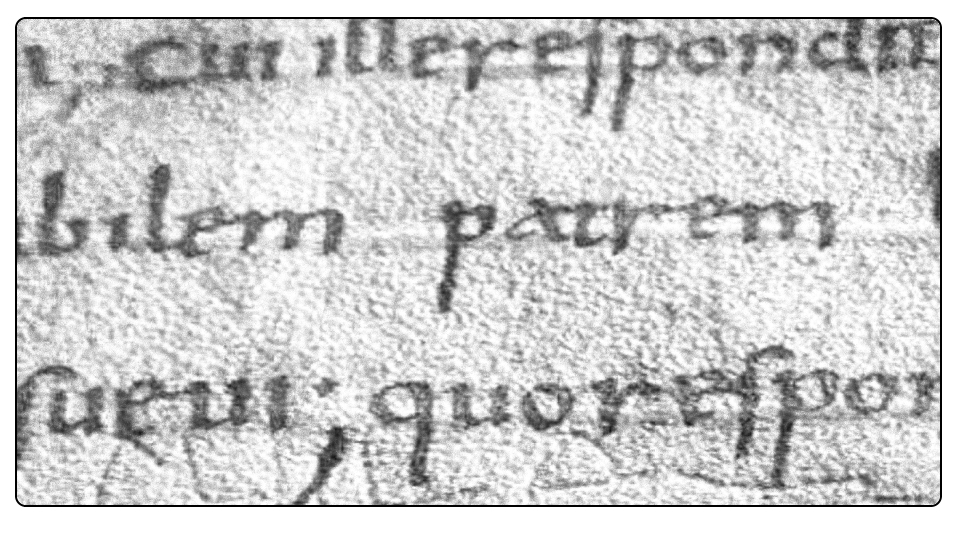 cui ille respond
bilem patrem
sueui; quo respon